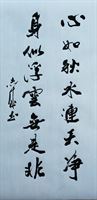 心如秋水連天淨
身似浮雲無是非